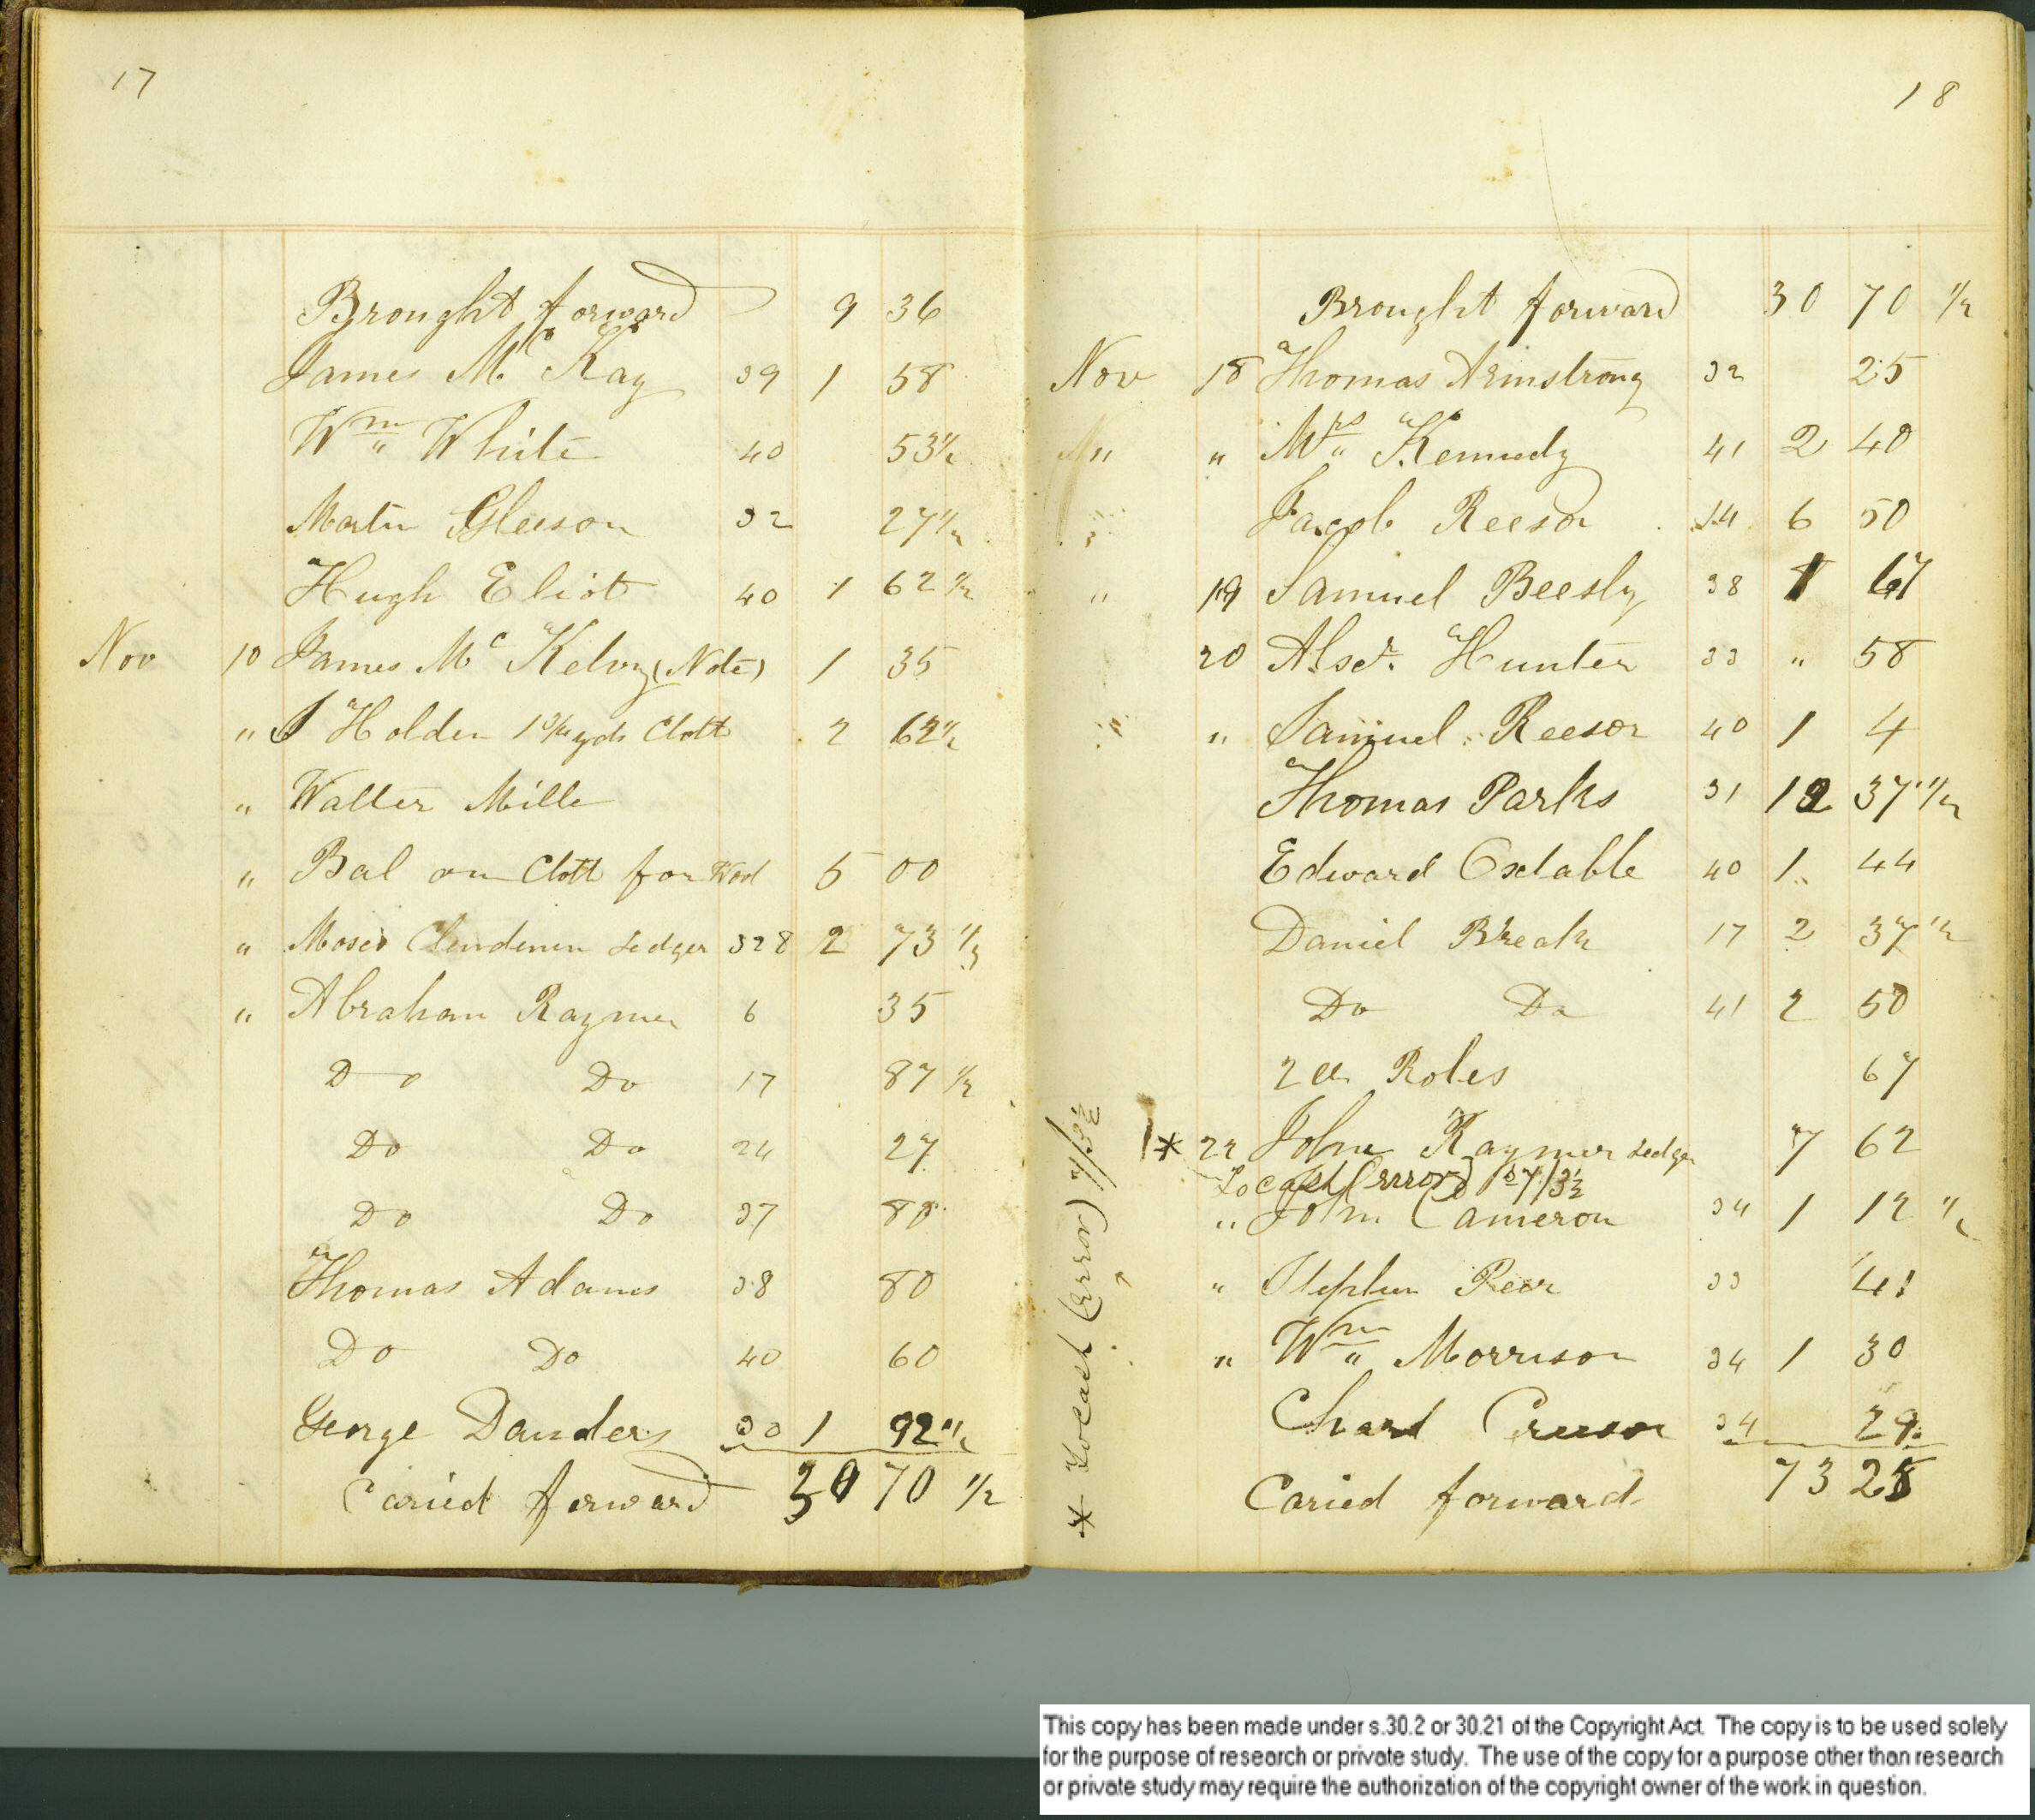 17
Brought forward 9 36
James Mc Kay 39 1 58
Wm White 40 53 1/2
Martin Gleeson 32 27 1/2
Hugh Eliot 40 1 62 1/2
Nov 10 James Mc Kelvy (Note) 1 35
" J Holden 1 3/4 yds Cloth 2 62 1/2
" Walter Mille
" Bal on Cloth for Wool 5 00
" Moses Clendenen Ledger 328 2 73 1/3
" Abraham Raymer 6 35
Do Do 17 87 1/2
Do Do 24 27
Do Do 37 88
Thomas Adams 38 80
Do Do 40 60
George Danders 30 1 92 1/2
Caried forward 30 70 1/2
18
Brought forward 30 70 1/2
Nov 18 Thomas Armstrong 32 25
" " Mrs Kennedy 41 2 40
" Jacob Reesor 14 6 50
" 19 Samuel Beesly 38 1 67
20 Alsdr. Hunter 33 " 58
" " Samuel Reesor 40 1 4
Thomas Parks 31 12 37 1/2
Edward Oxtable 40 1 44
Daniel Break 17 2 37 1/2
Do Do 41 2 50
2 Roles 67
* 22 John Raymer Ledger 7 62
Locast (Error) 7/3 1/2
" John Cameron 34 1 12 1/2
" Stephen Peer 33 41
" Wm Morrison 34 1 30
Chard Creesor 34 29
Caried forward 73 25
* Locast (Error) 7/3 1/2
This copy has been made under s.30.2 or 30.21 of the Copyright Act. The copy is to be used solely
for the purpose of research or private study. The use of the copy for a purpose other than research
or private study may require the authorization of the copyright owner of the work in question.